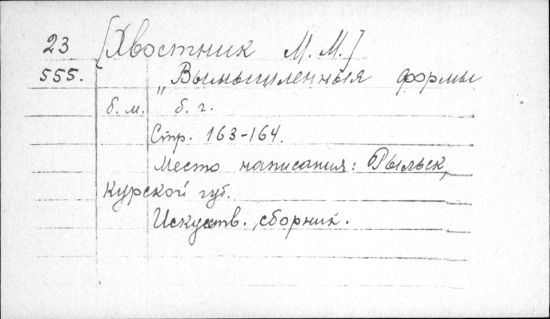 23 [Хвостник М. М.]
555. „Вымышленныя формы
б. м. б. г.
Стр. 163-164.
Место написания: Рыльск,
Курской губ.
Искусств. сборник.